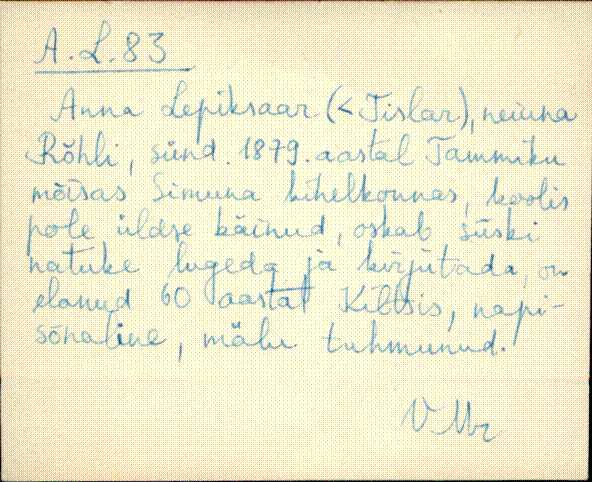 A.L.83
Anna Lepiksaar (< Tislar), neiuna
Rõhli, sünd. 1879. aastal Tammiku
mõisas Simuna kihelkonnas, koolis
pole üldse käinud, oskab siiski
natuke lugeda ja kirjutada, on
elanud 60 aastat Kiltsis, napi-
sõnaline, mälu tuhmunud.